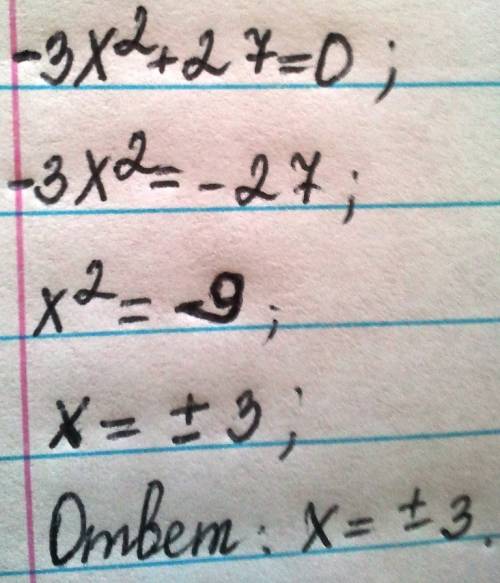 -3x²+27=0;
-3x²=-27;
x²=-9;
x=±3;
Ответ: x=±3.